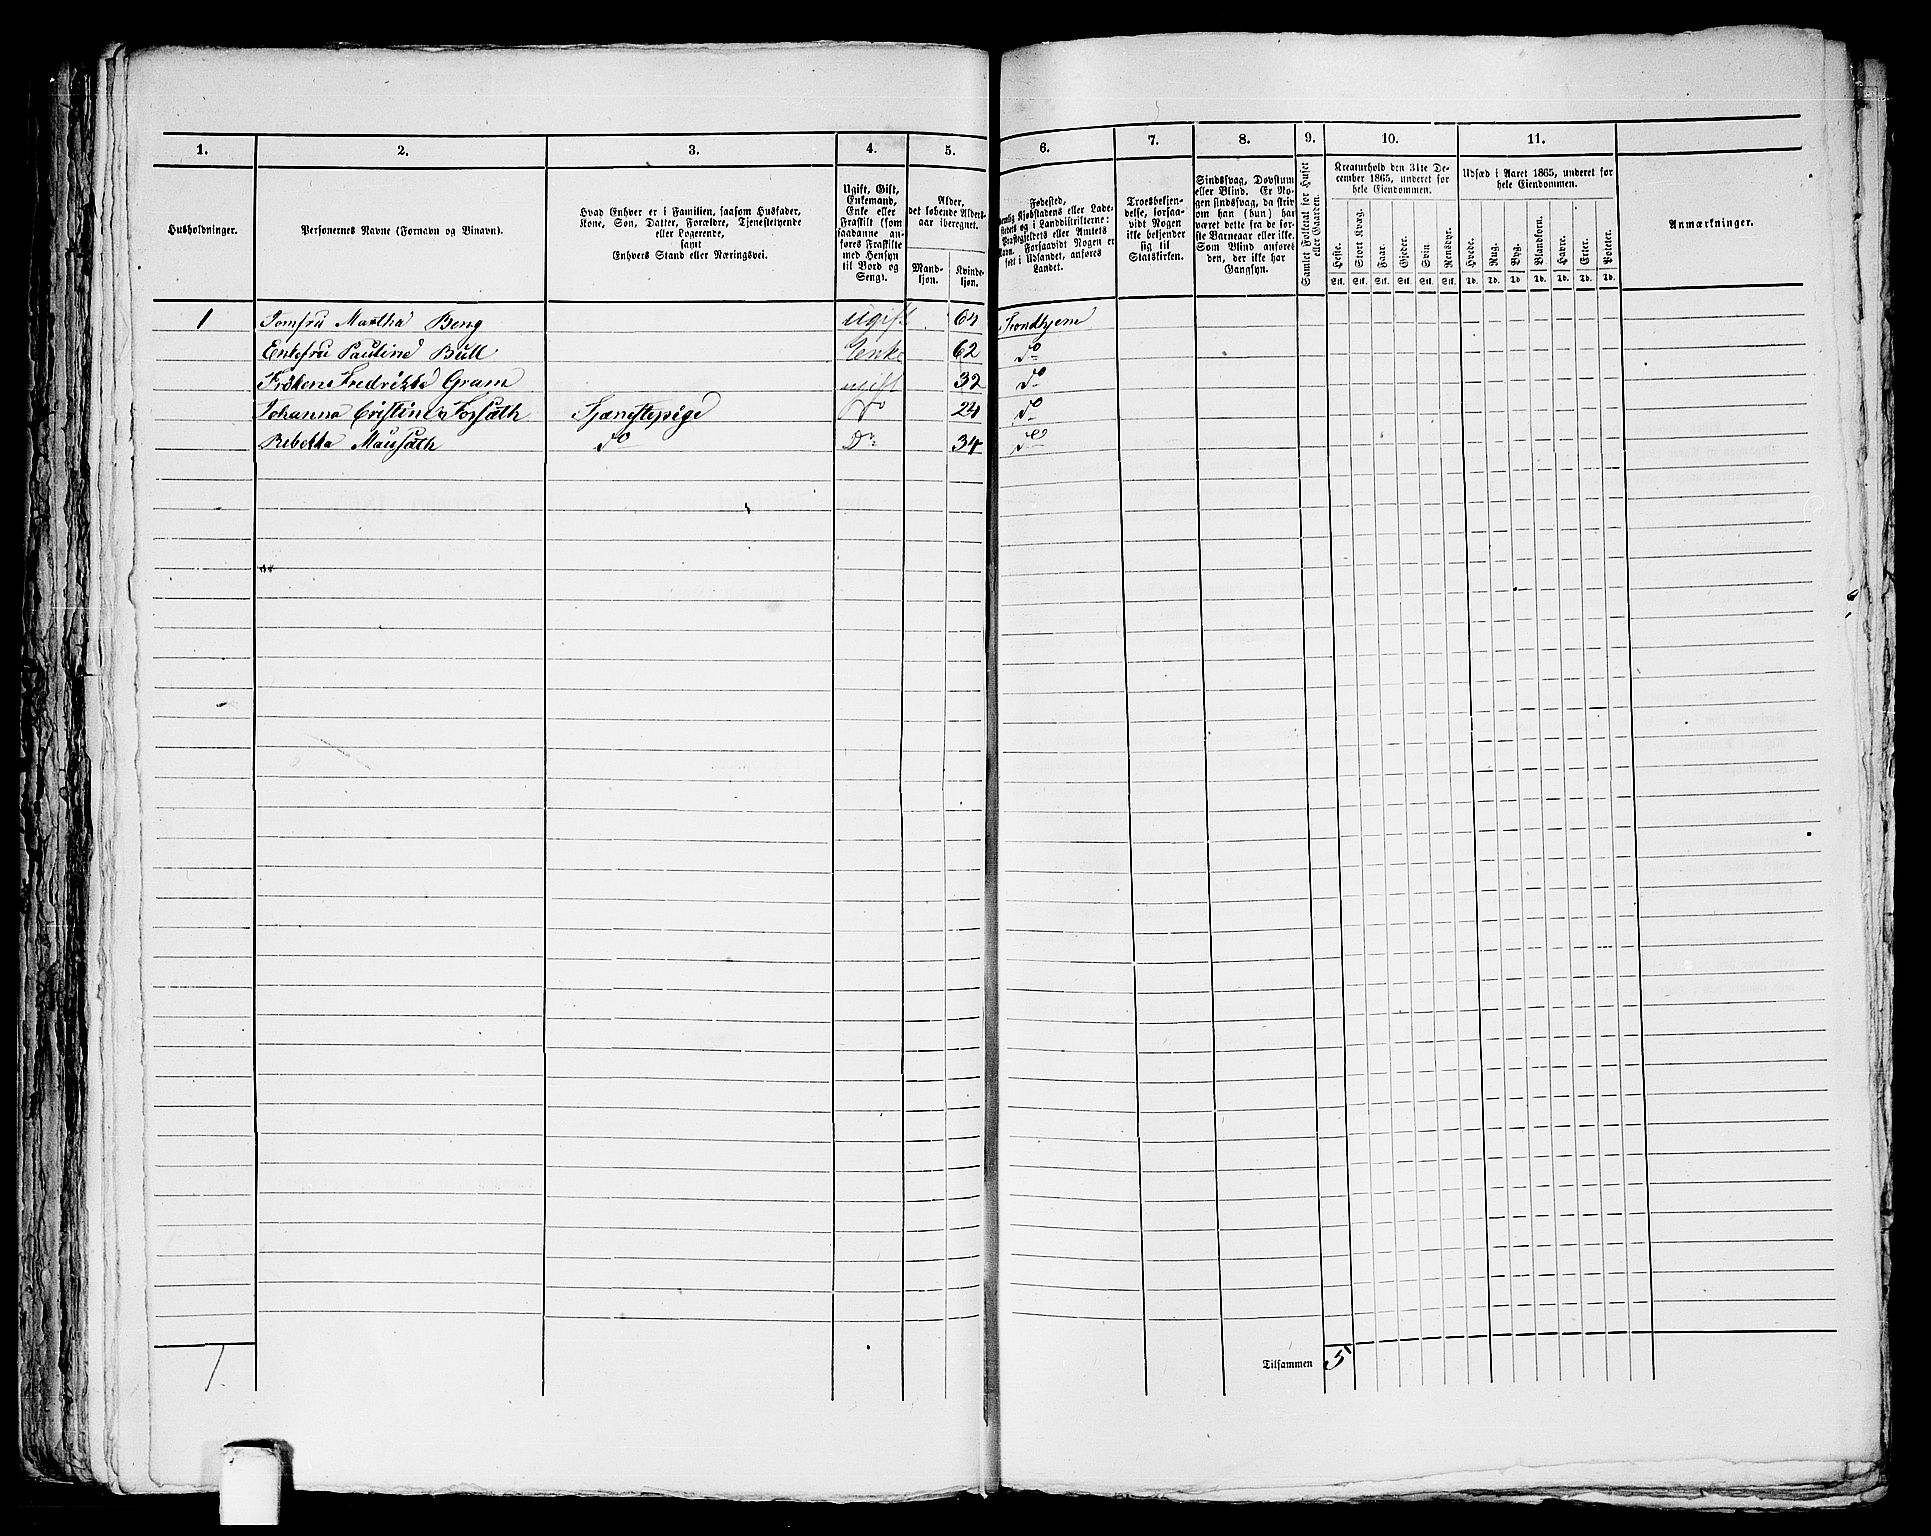 1. 2. 3. 4. 5. 6. 7. 8. 9. 10. 11.
Husholdninger.
Personernes Navne (Fornavn og Binavn).
Hvad Enhver er i Familien, saasom Husfader,
Kone, Søn, Datter, Forældre, Tjenestetyende
eller Logerende,
samt
Enhvers Stand eller Næringsvei.
Ugift, Gift,
Enkemand,
Enke eller
Fraskilt (som
saadanne an-
føres Fraskilte
med Hensyn
til Bord og
Seng).
Alder,
det løbende Alders-
aar iberegnet.
Mand-
kjøn.
Kvinde-
kjøn.
Fødested,
nemlig Kjøbstadens eller Lade-
stedets og i Landdistrikterne:
Præstegjeldets eller Amtets
Navn. Forsaavidt Nogen er
født i Udlandet, anføres
Landet.
Troesbekjen-
delse, forsaa-
vidt Nogen
ikke bekjender
sig til
Statskirken.
Sindssvag, Døvstum
eller Blind. Er No-
gen sindssvag, da skriv
om han (hun) har
været dette fra de før-
ste Barneaar eller ikke.
Som Blind anføres
den, der ikke har
Gangsyn.
Samlet Folketal for Huset
eller Gaarden.
Kreaturhold den 31te De-
cember 1865, underet for
hele Eiendommen.
Heste. Stort Kvæg. Faar. Gjeder. Svin Rensdyr.
Stk. Stk. Stk. Stk. Stk. Stk.
Udsæd i Aaret 1865, underet for
hele Eiendommen.
Hvede. Rug. Byg. Blandkorn. Havre. Erter. Poteter.
Td. Td. Td Td. Td. Td. Td.
Anmærkninger.
1 Jomfru Martha Beng ugift 64 Trondhjem
Enkefru Pauline Bull Enke 62 Do
Frøken Fredrikke Gram ugift 32 Do
Johanna Cristine Forsæth Tjenestepige Do 24 Do
Rebekka Mausæth Do Do 34 Do
1. Tilsammen 5